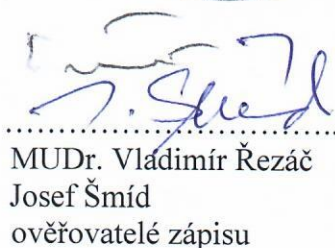 MUDr. Vladimír Řezáč
Josef Šmíd
ověřovatelé zápisu